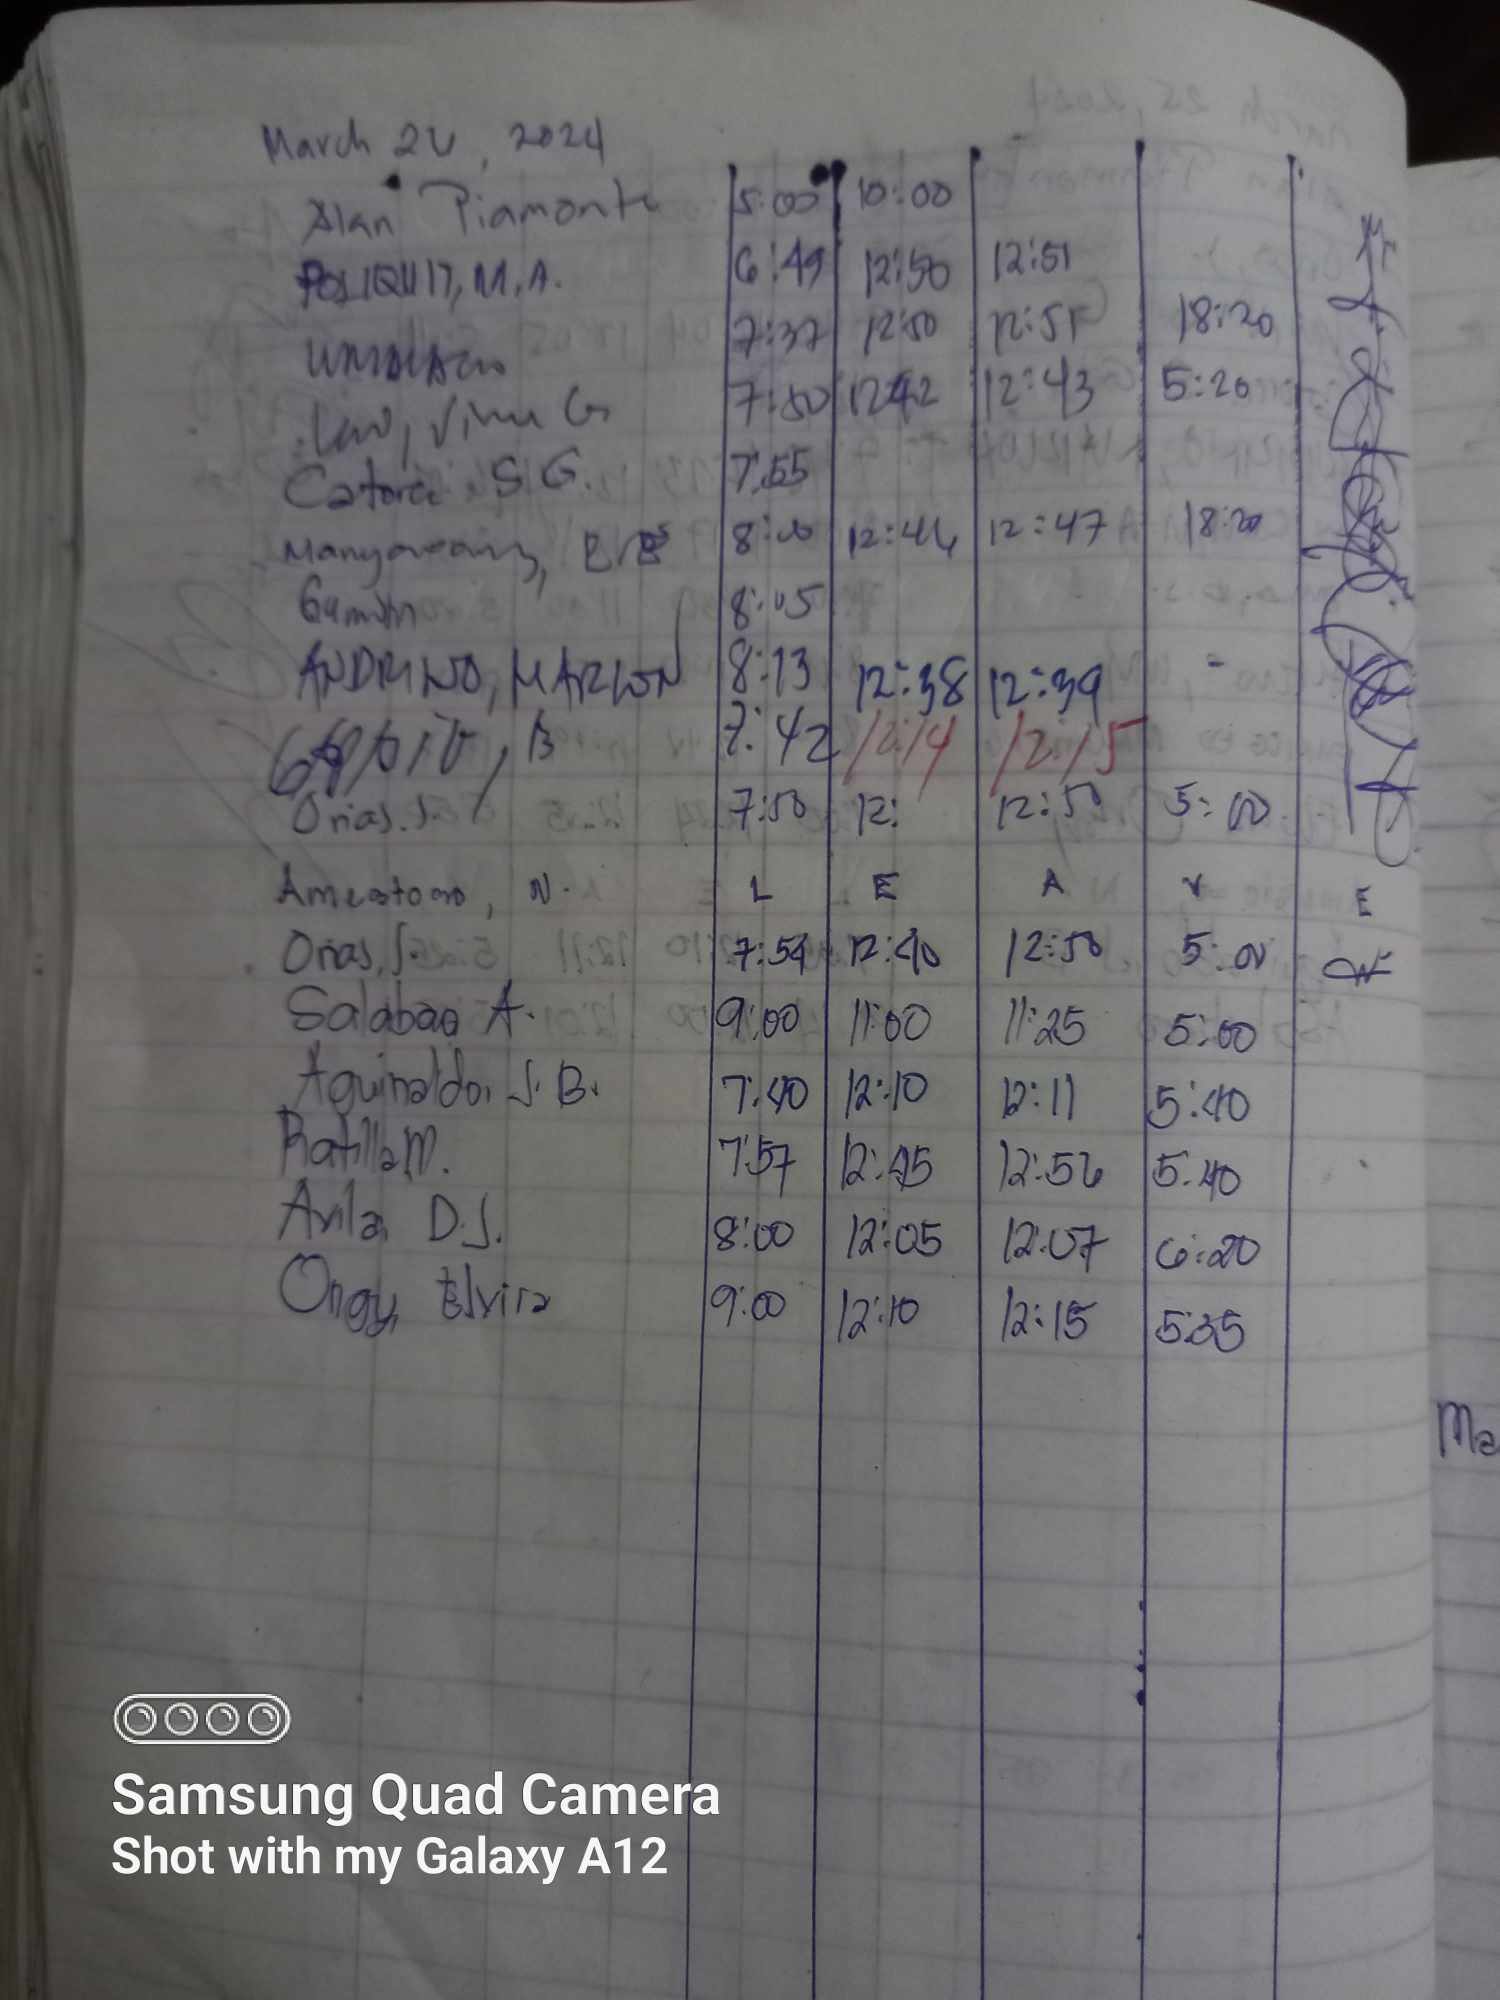 March 26, 2024
Alan Piamonte 5:00 10:00
POLIQUIT, M.A. 6:49 12:50 12:51
7:37 12:50 12:51 18:20
G. 7:50 12:42 12:43 5:20
Catora S.G. 7:55
8:00 12:46 12:47 18:20
8:05
ANDRINO, MARLON 8:13 12:38 12:39 -
B 7:42 12:14 12:15
Orias, J. 7:50 12: 12:50 5:00
N. L E A V E
Orias, J. 7:54 12:40 12:50 5:00
Salabao A. 9:00 11:00 11:25 5:00
Aguinaldo, J.B. 7:40 12:10 12:11 5:40
Ratilla M. 7:57 12:45 12:56 5:40
Avila, D.J. 8:00 12:05 12:07 6:20
Ongy, Elvira 9:00 12:10 12:15 5:35
Ma
Samsung Quad Camera
Shot with my Galaxy A12